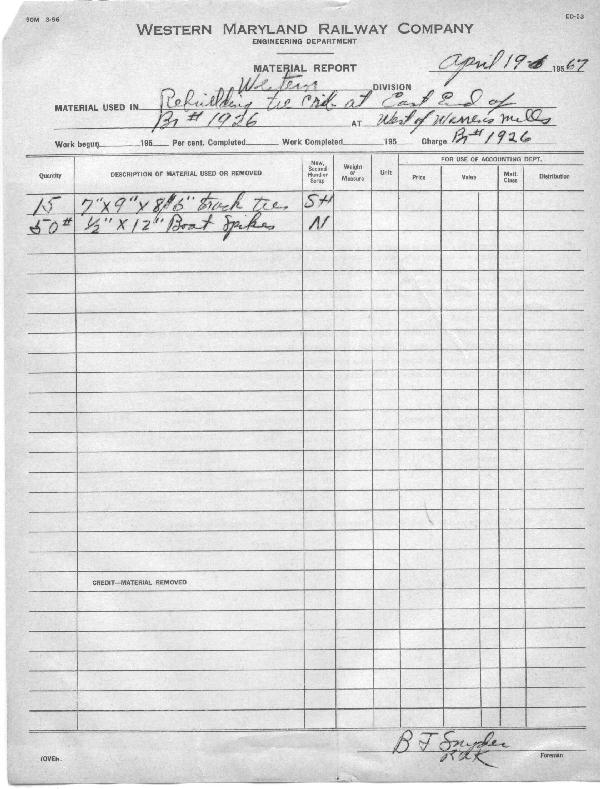 50M 3-56 ED-53
WESTERN MARYLAND RAILWAY COMPANY
ENGINEERING DEPARTMENT
MATERIAL REPORT April 19 1956 67
Western DIVISION
MATERIAL USED IN Rebuilding tie crib at East End of
Br # 1926 AT West of Warrens Mills
Work begun 195 Per cent. Completed Work Completed 195 Charge Br # 1926
Quantity DESCRIPTION OF MATERIAL USED OR REMOVED New, Second Hand or Scrap Weight or Measure Unit FOR USE OF ACCOUNTING DEPT.
Price Value Matl. Class Distribution
15 7" X 9" X 8' 6" Track ties SH
50 # 1/2" X 12" Boat Spikes N
CREDIT—MATERIAL REMOVED
B F Snyder
RAK
(OVER) Foreman